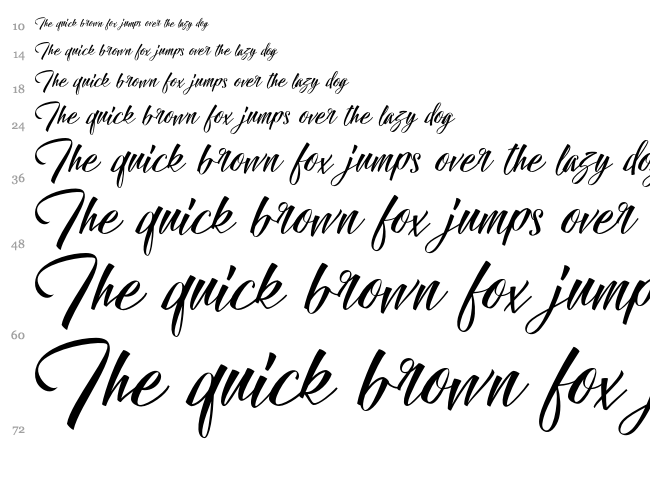 10 The quick brown fox jumps over the lazy dog
14 The quick brown fox jumps over the lazy dog
18 The quick brown fox jumps over the lazy dog
24 The quick brown fox jumps over the lazy dog
36 The quick brown fox jumps over the lazy do
48 The quick brown fox jumps over
60 The quick brown fox jump
72 The quick brown fox j